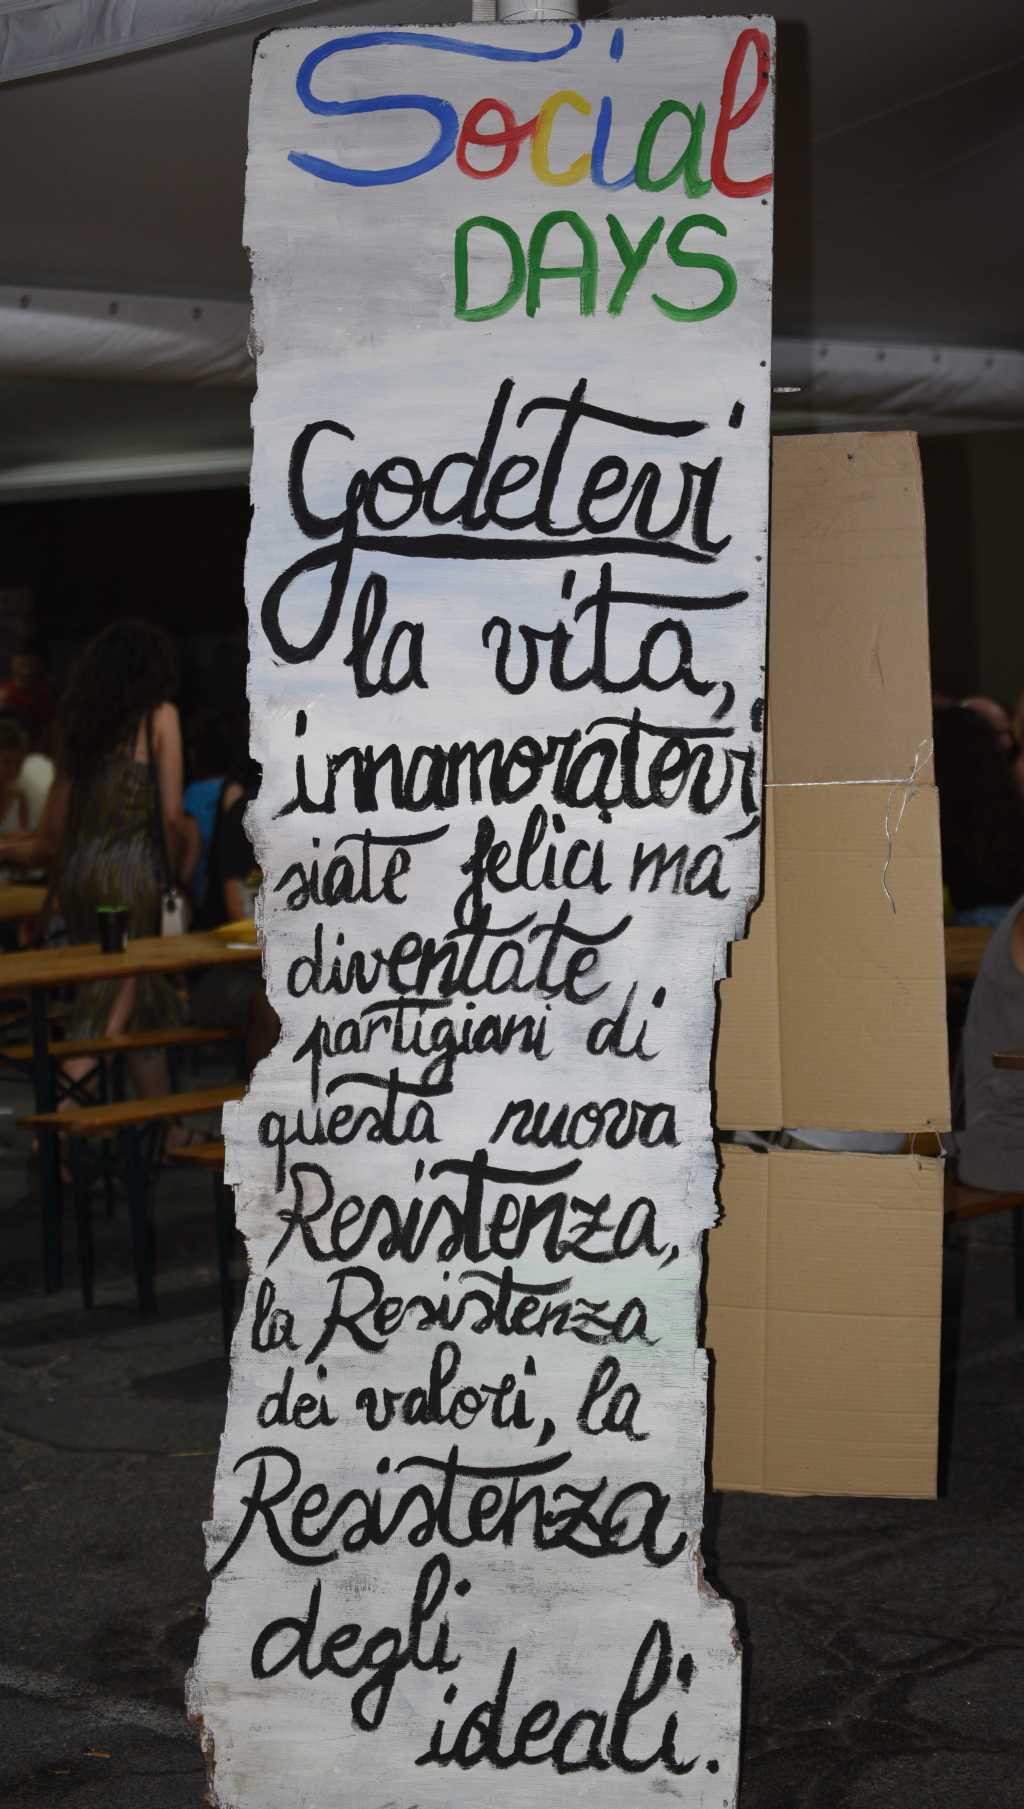 Social
DAYS
Godetevi
la vita,
innamoratevi,
siate felici ma
diventate
partigiani di
questa nuova
Resistenza,
la Resistenza
dei valori, la
Resistenza
degli
ideali.